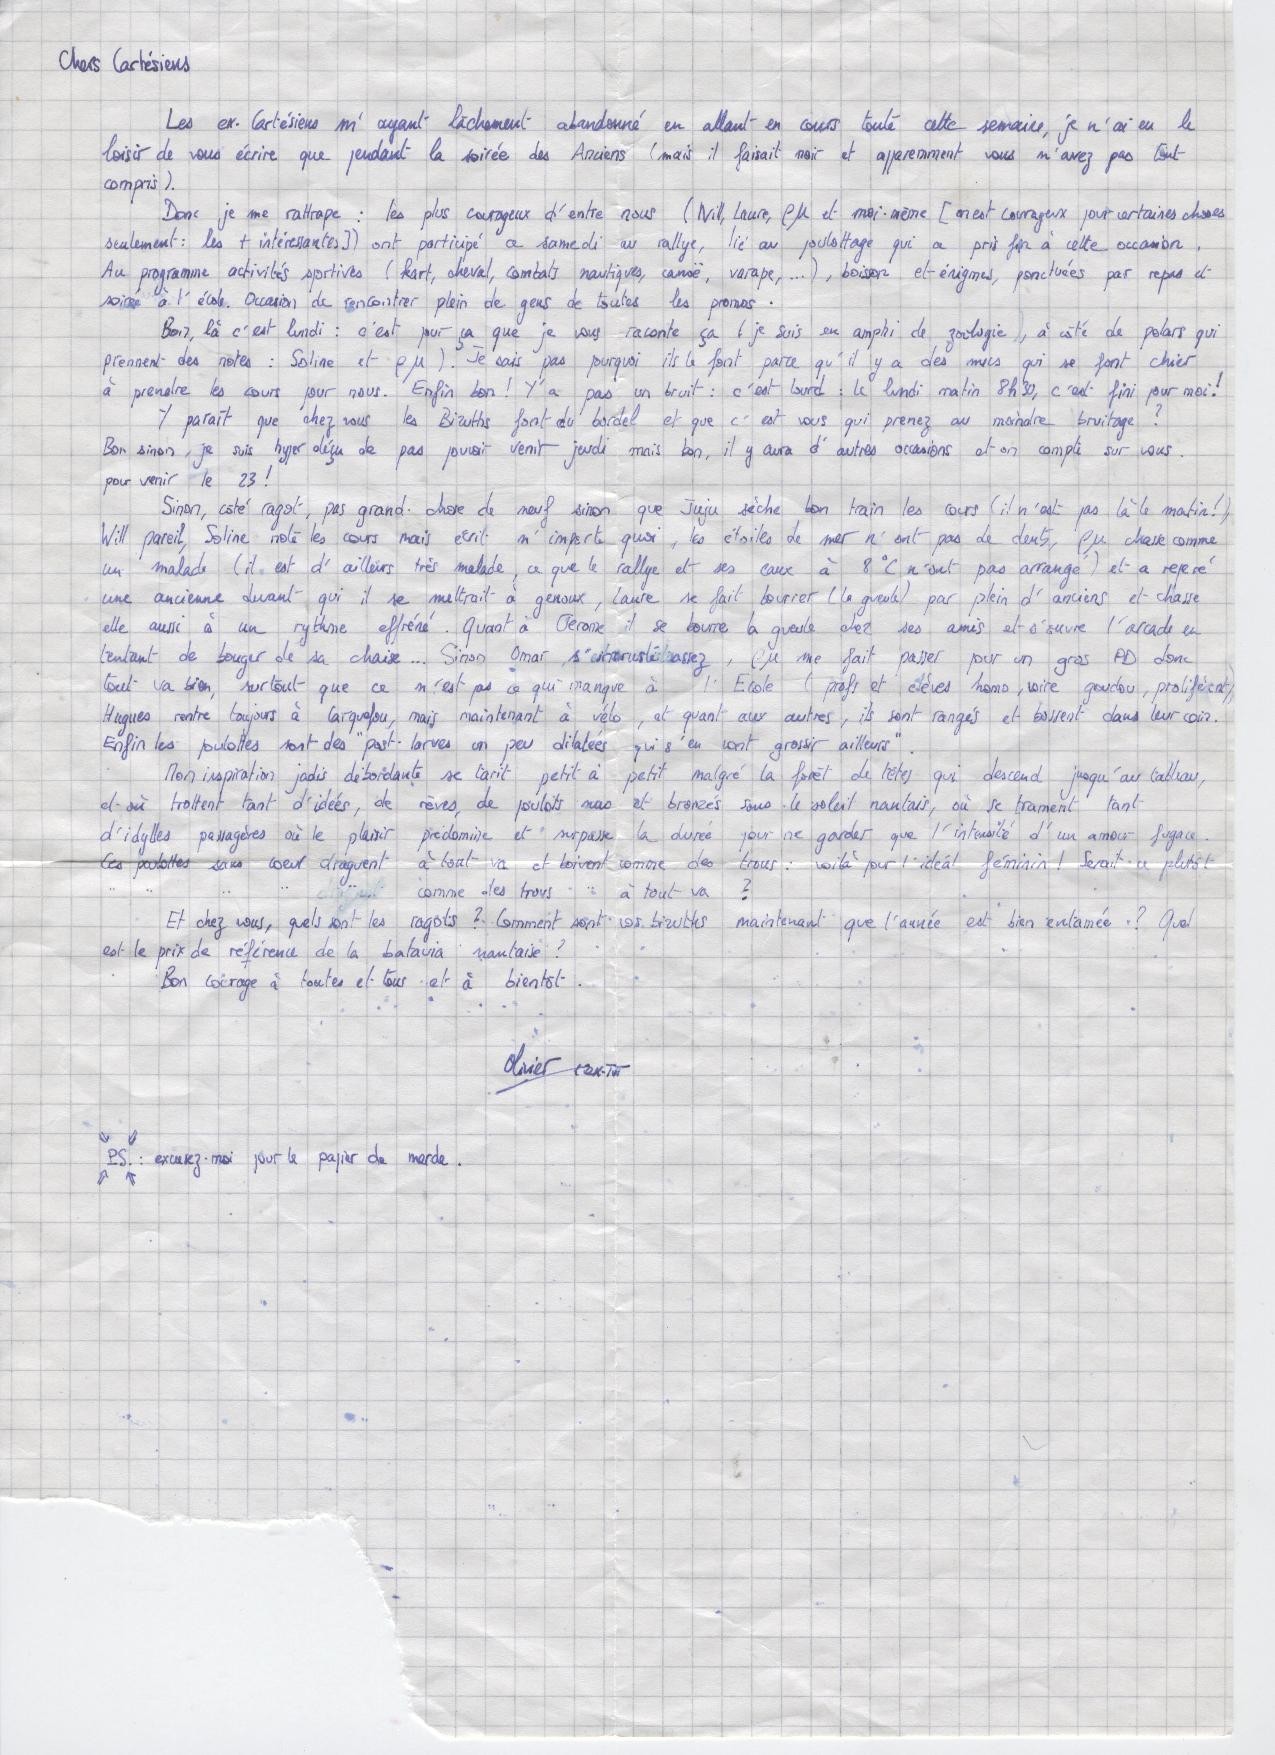 Chers Cartésiens
Les ex-Cartésiens m'ayant lâchement abandonné en allant en cours toute cette semaine, je n'ai eu le
loisir de vous écrire que pendant la soirée des Anciens (mais il faisait noir et apparemment vous n'avez pas tout
compris).
Donc je me rattrape : les plus courageux d'entre nous (Will, Laure, ρμ et moi-même [on est courageux pour certaines choses
seulement : les + intéressantes]) ont participé ce samedi au rallye, lié au poulottage qui a pris fin à cette occasion.
Au programme activités sportives (kart, cheval, combats nautiques, canoë, varape, ...), boisson et énigmes, ponctuées par repas et
soirée à l'école. Occasion de rencontrer plein de gens de toutes les promos.
Bon, là c'est lundi : c'est pour ça que je vous raconte ça (je suis en amphi de zoologie), à côté de polars qui
prennent des notes : Soline et ρμ). Je sais pas pourquoi ils le font parce qu'il y a des mecs qui se font chier
à prendre les cours pour nous. Enfin bon ! Y'a pas un bruit : c'est lourd : le lundi matin 8h30, c'est fini pour moi !
Y paraît que chez vous les Bizuths font du bordel et que c'est vous qui prenez au moindre bruitage ?
Bon sinon, je suis hyper déçu de pas pouvoir venir jeudi mais bon, il y aura d'autres occasions et on compte sur vous.
pour venir le 23 !
Sinon, côté ragot, pas grand-chose de neuf sinon que Juju sèche bon train les cours (il n'est pas là le matin !),
Will pareil, Soline note les cours mais écrit n'importe quoi, les étoiles de mer n'ont pas de dents, ρμ chasse comme
un malade (il est d'ailleurs très malade, ce que le rallye et ses eaux à 8°C n'ont pas arrangé) et a repéré
une ancienne devant qui il se mettrait à genoux, Laure se fait bourrer (la gueule) par plein d'anciens et chasse
elle aussi à un rythme effréné. Quant à Jérome il se bourre la gueule chez ses amis et s'ouvre l'arcade en
tentant de bouger de sa chaise... Sinon Omar s'incruste assez, ρμ me fait passer pour un gros PD donc
tout va bien, surtout que ce n'est pas ce qui manque à l'Ecole (profs et élèves homo, voire goudou, prolifèrent),
Hugues rentre toujours à Carquefou, mais maintenant à vélo, et quant aux autres, ils sont rangés et bossent dans leur coin.
Enfin les poulottes sont des "post-larves un peu dilatées qui s'en vont grossir ailleurs".
Mon inspiration jadis débordante se tarit petit à petit malgré la forêt de têtes qui descend jusqu'au tableau,
et où trottent tant d'idées, de rêves, de poulots nus et bronzés sous le soleil nantais, où se trament tant
d'idylles passagères où le plaisir prédomine et surpasse la durée pour ne garder que l'intensité d'un amour fugace.
Ces poulottes sans coeur draguent à tout va et boivent comme des trous : voilà pour l'idéal féminin ! Serait-ce plutôt
" " " " comme des trous " à tout va ?
Et chez vous, quels sont les ragots ? Comment sont vos bizuths maintenant que l'année est bien entamée ? Quel
est le prix de référence de la batavia nantaise ?
Bon courage à toutes et tous et à bientôt.
Olivier
P.S. : excusez-moi pour le papier de merde.